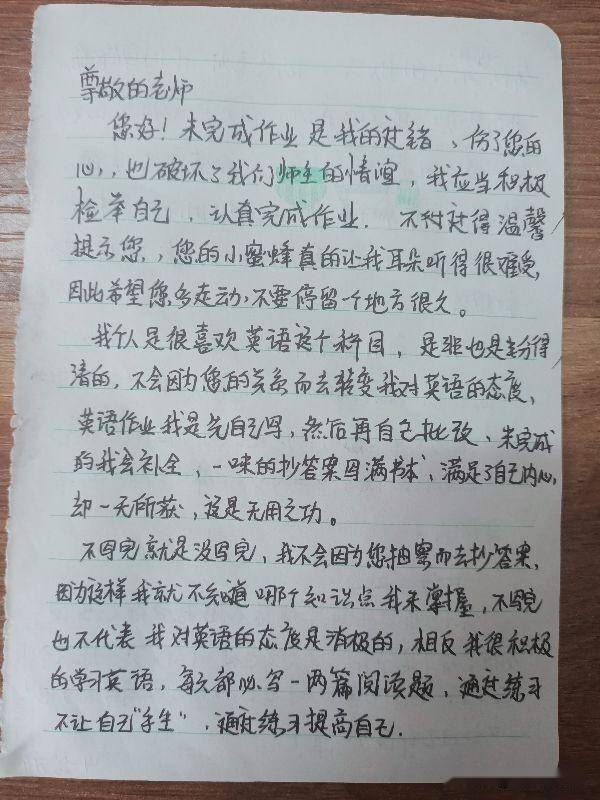 尊敬的老师
您好！未完成作业是我的过错，伤了您的
心，也破坏了我们师生的情谊，我应当积极
检举自己，认真完成作业．不过还得温馨
提示您，您的小蜜蜂真的让我耳朵听得很难受
因此希望您多走动，不要停留一个地方很久。
我个人是很喜欢英语这个科目，是非也是分得
清的，不会因为您的关系而去转变我对英语的态度，
英语作业我是先自己写，然后再自己批改、未完成
的我会补全，一味的抄答案写满书本，满足了自己内心，
却一无所获，这是无用之功。
不写完就是没写完，我不会因为您抽察而去抄答案，
因为这样我就不知道哪个知识点我未掌握，不写完
也不代表我对英语的态度是消极的，相反我很积极
的学习英语，每天都必写一两篇阅读题，通过练习
不让自己"手生"，通过练习提高自己．